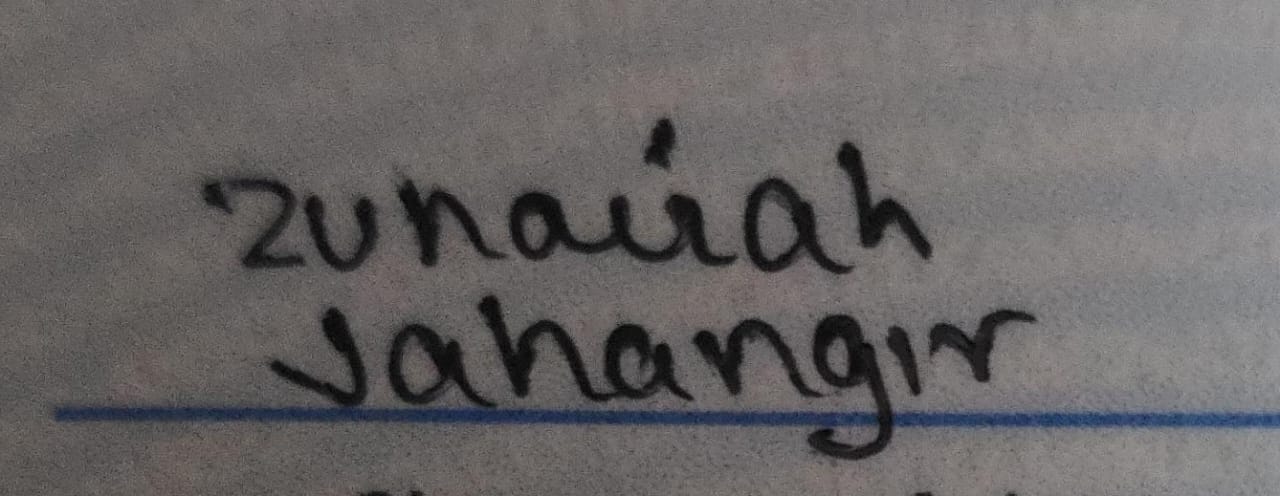 Zunairah
Jahangir